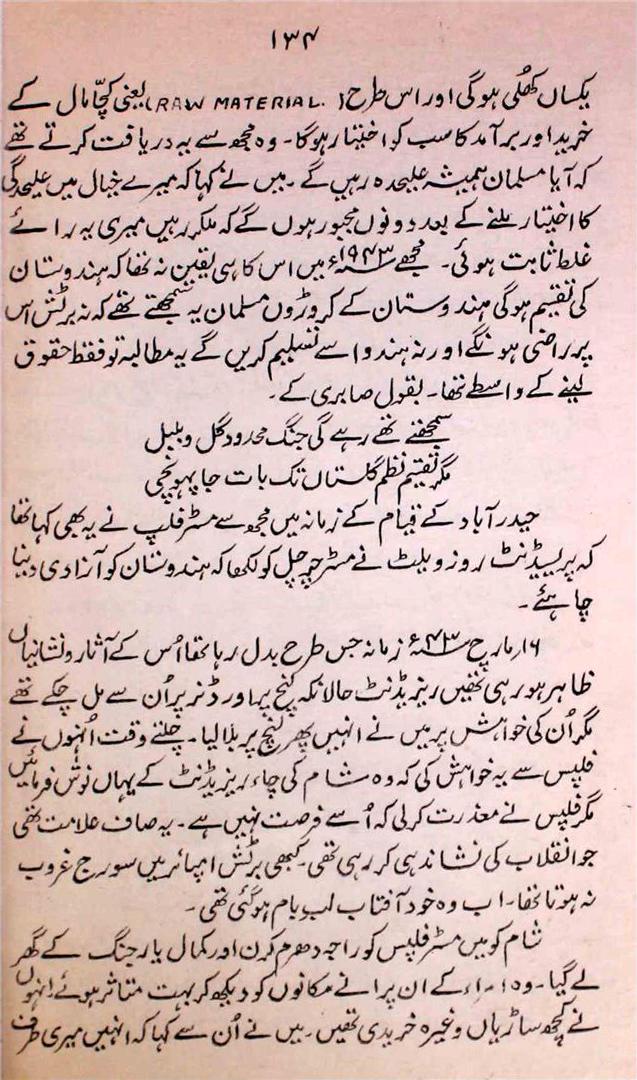 ۱۳۴
یکساں کھُلی ہوگی اور اس طرح (RAW MATERIAL.) یعنی کچّا مال کے
خرید اور برآمد کا سب کو اختیار ہوگا۔ وہ مجھ سے یہ دریافت کرتے تھے
کہ آیا مسلمان ہمیشہ علیحدہ رہیں گے۔ میں نے کہا کہ میرے خیال میں علیحدگی
کا اختیار ملنے کے بعد دونوں مجبور ہوں گے کہ ملکر رہیں میری یہ رائے
غلط ثابت ہوئی۔ مجھے ۱۹۴۳ء میں اس کا ہی یقین نہ تھا کہ ہندوستان
کی تقسیم ہوگی ہندوستان کے کروڑوں مسلمان یہ سمجھتے تھے کہ نہ برٹش اس
پر راضی ہونگے اور نہ ہندو اسے تسلیم کریں گے یہ مطالبہ تو فقط حقوق
لینے کے واسطے تھا۔ بقول صابری کے۔
سمجھتے تھے رہے گی جنگ محدود گل و بلبل
مگر تقسیم نظم گلستاں تک بات جا پہونچی
حیدرآباد کے قیام کے زمانہ میں مجھ سے مسٹر فلپ نے یہ بھی کہا تھا
کہ پریسیڈنٹ روزویلٹ نے مسٹر چرچل کو لکھا کہ ہندوستان کو آزادی دینا
چاہئے۔
۱۶ مارچ ۴۳ء زمانہ جس طرح بدل رہا تھا اُس کے آثار و نشانیاں
ظاہر ہو رہی تھیں ریزیڈنٹ حالانکہ لنچ پر اور ڈنر پر اُن سے مل چکے تھے
مگر اُن کی خواہش پر میں نے انہیں پھر لنچ پر بلا لیا۔ چلتے وقت اُنہوں نے
فلپس سے یہ خواہش کی کہ وہ شام کی چاء ریزیڈنٹ کے یہاں نوش فرمائیں
مگر فلپس نے معذرت کرلی کہ اُسے فرصت نہیں ہے۔ یہ صاف علامت تھی
جو انقلاب کی نشاندہی کر رہی تھی۔ کبھی برٹش امپائر میں سورج غروب
نہ ہوتا تھا۔ اب وہ خود آفتاب لب بام ہوگئی تھی۔
شام کو میں مسٹر فلپس کو راجہ دھرم کرن اور کمال یار جنگ کے گھر
لے گیا۔ وہ امراء کے ان پرانے مکانوں کو دیکھ کر بہت متاثر ہوئے انہوں
نے کچھ ساڑیاں وغیرہ خریدی تھیں۔ میں نے اُن سے کہا کہ انہیں میری طرف